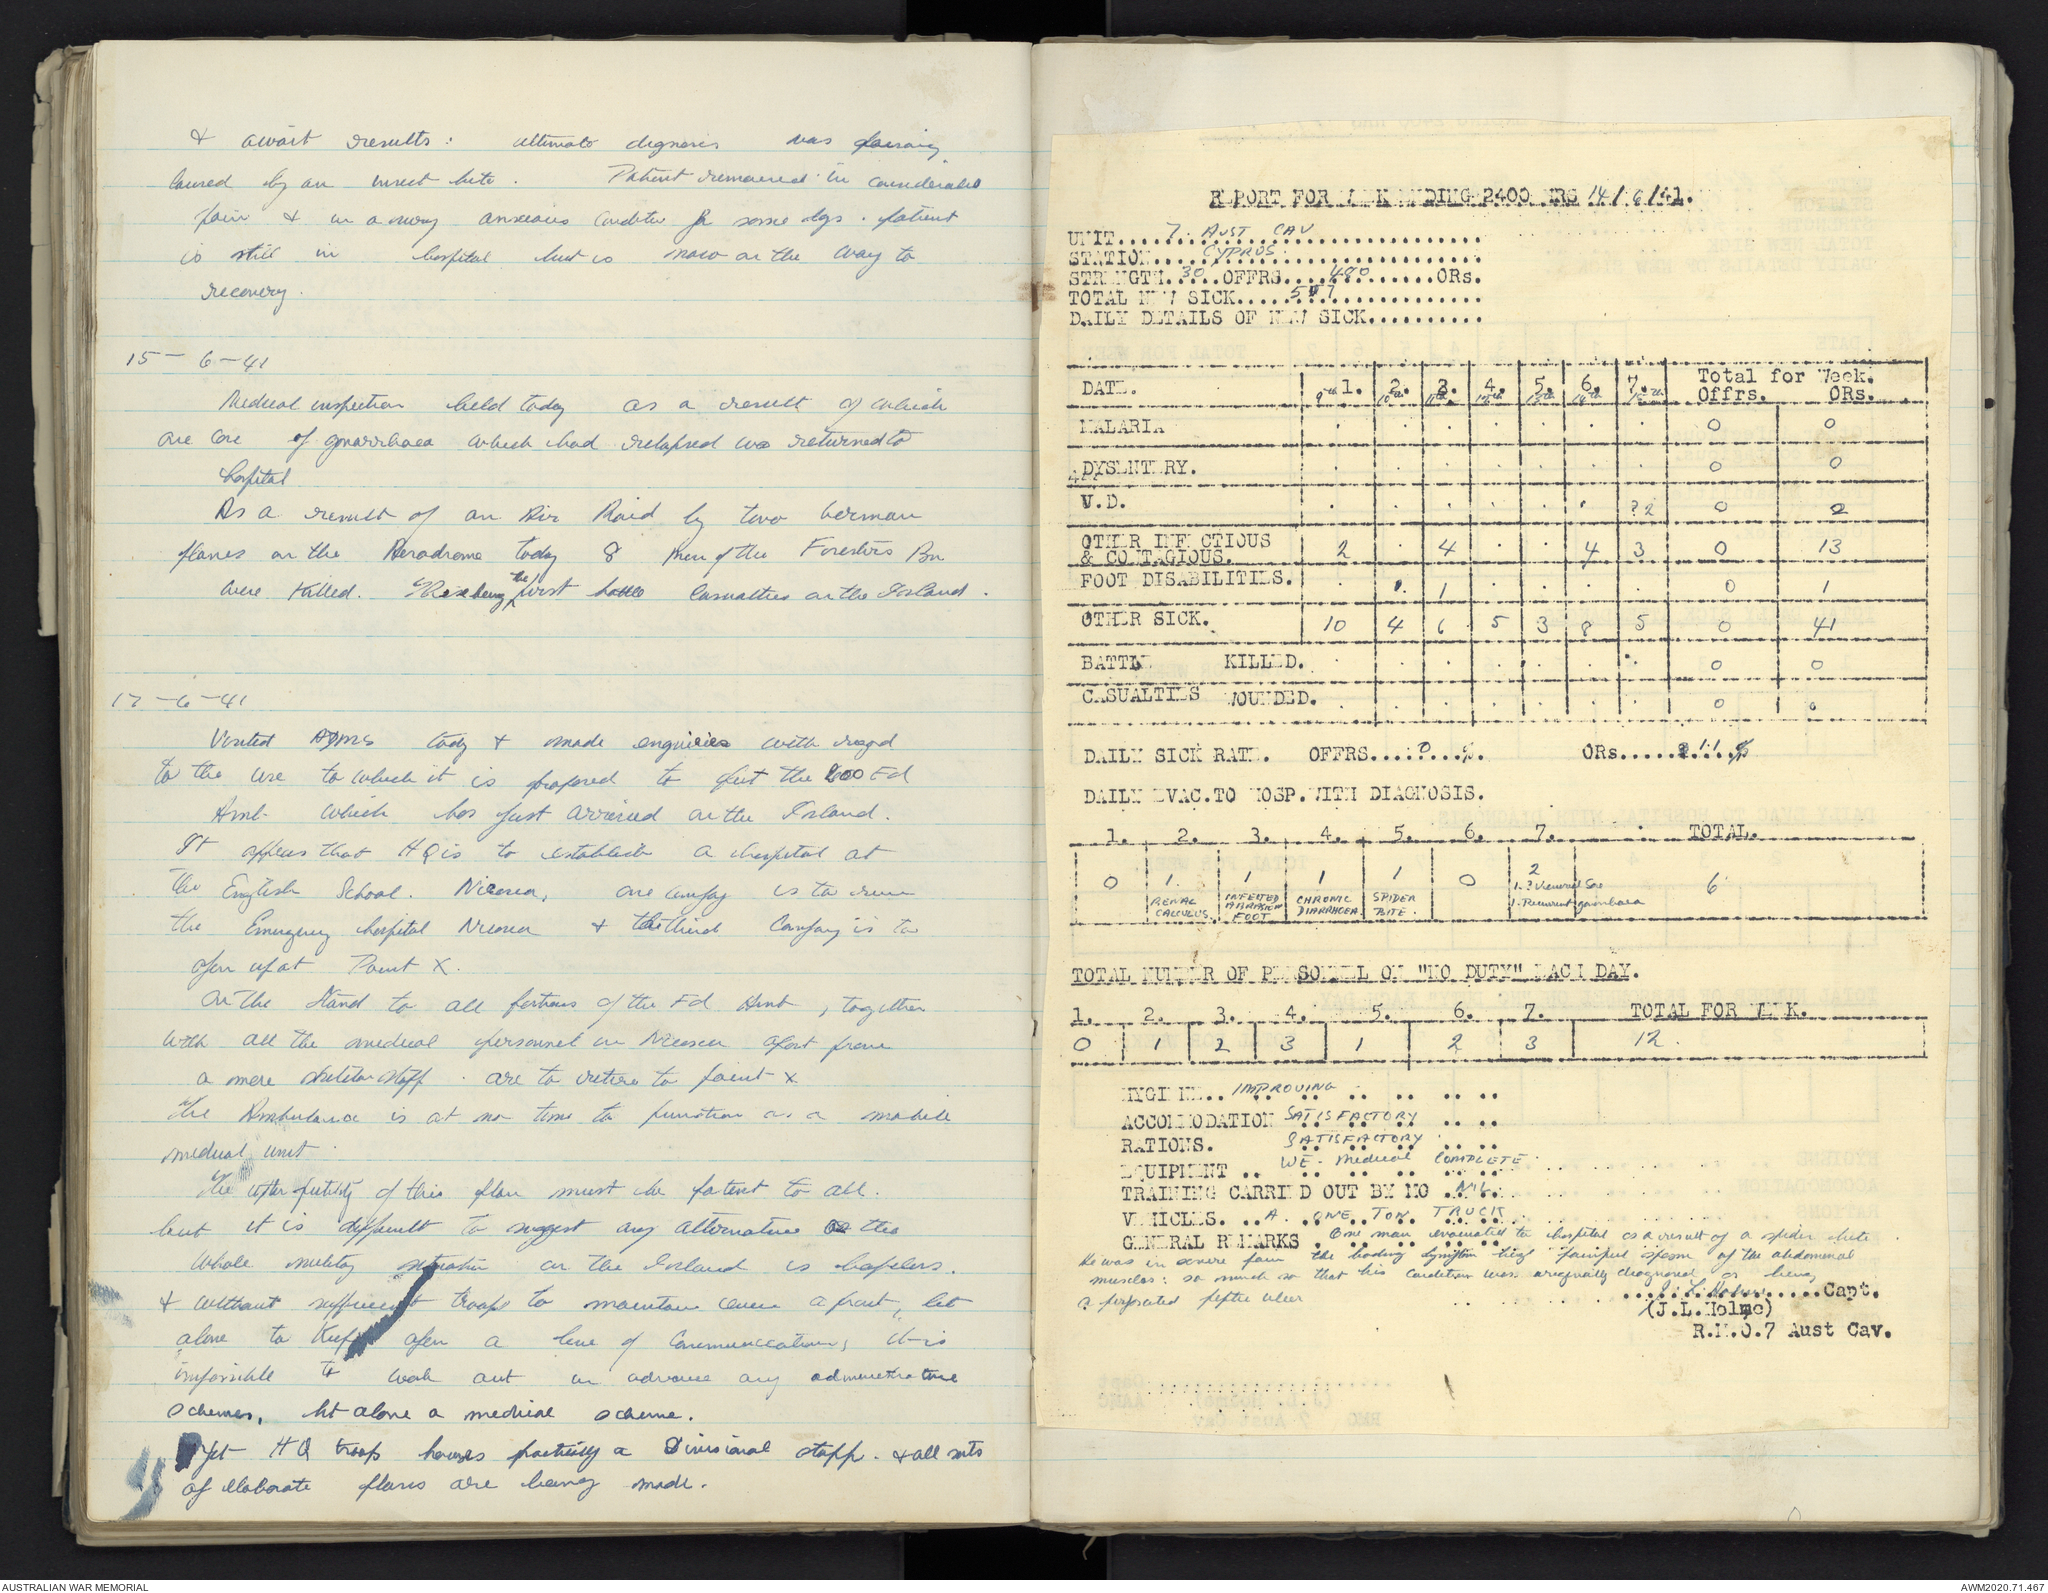 & await results: ultimate diagnosis was poisoning
caused by an insect bite. Patient remained in considerable
pain & in a very anxious condition for some dys. patient
is still in hospital but is now on the way to
recovery.
15-6-41
Medical inspection held today as a result of which
one case of gonorrhoea which had relapsed was returned to
hospital
As a result of an Air Raid by two German
planes on the Aerodrome today 8 men of the Foresters Bn
were killed. These being the first battle casualties on the Island.
17-6-41
Visited ADMS tody & made enquiries with regard
to the use to which it is proposed to put the 200 Fd
Amb. which has just arrived on the Island.
It appears that HQ is to establish a hospital at
the English School. Nicosia, one company is to run
the Emergency hospital Nicosia & the third Company is to
open up at Point X.
On the Stand to all portions of the Fd Amb, together
with all the medical personnel in Nicosia apart from
a mere skeleton staff. are to retire to point X
The Ambulance is at no time to function as a mobile
medical unit.
The utter futility of this plan must be patent to all.
but it is difficult to suggest any alternative as the
whole military situation on the Island is hopeless.
& without sufficient troops to maintain even a front, let
alone to keep open a line of communications, it is
impossible to work out in advance any administrative
schemes, let alone a medical scheme.
Yet HQ troops houses practically a Divisional staff. & all sorts
of elaborate plans are being made.
REPORT FOR WEEK ENDING 2400 HRS 14/6/41.
UNIT....7 AUST CAV
STATION....CYPRUS
STRENGTH.30..OFFRS....480....ORs.
TOTAL NEW SICK.....57
DAILY DETAILS OF NEW SICK..........
DATE. 1. 2. 3. 4. 5. 6. 7. Total for Week.
9th 10th 11th 12th 13th 14th 15th Offrs. ORs.
MALARIA . . . . . . . 0 0
DYSENTERY. . . . . . . . 0 0
V.D. . . . . . . ?2 0 2
OTHER INFECTIOUS
& CONTAGIOUS. 2 . 4 . . 4 3 0 13
FOOT DISABILITIES. . . 1 . . . . 0 1
OTHER SICK. 10 4 6 5 3 8 5 0 41
BATTLE KILLED. . . . . . . . 0 0
CASUALTIES WOUNDED. . . . . . . . 0 0
DAILY SICK RATE. OFFRS....0...%. ORs.....1.1.%
DAILY EVAC.TO HOSP.WITH DIAGNOSIS.
1. 2. 3. 4. 5. 6. 7. TOTAL.
0 1 1 1 1 0 2 6
RENAL CALCULUS. INFECTED ABRASION FOOT CHRONIC DIARRHOEA SPIDER BITE. 1.? Venereal Sore
1. Recurrent gonorrhoea
TOTAL NUMBER OF PERSONNEL ON "NO DUTY" EACH DAY.
1. 2. 3. 4. 5. 6. 7. TOTAL FOR WEEK.
0 1 2 3 1 2 3 12.
HYGIENE.. IMPROVING
ACCOMMODATION SATISFACTORY
RATIONS. SATISFACTORY
EQUIPMENT .. WE. Medical COMPLETE.
TRAINING CARRIED OUT BY MO .NIL.
VEHICLES. ..A. ONE TON TRUCK
GENERAL REMARKS . One man evacuated to hospital as a result of a spider bite.
He was in severe pain the leading symptom being painful spasm of the abdominal
muscles: so much so that his condition was originally diagnosed as being
a perforated peptic ulcer
J. L. Holme......Capt.
(J.L.Holme)
R.M.O.7 Aust Cav.
AUSTRALIAN WAR MEMORIAL
AWM2020.71.467